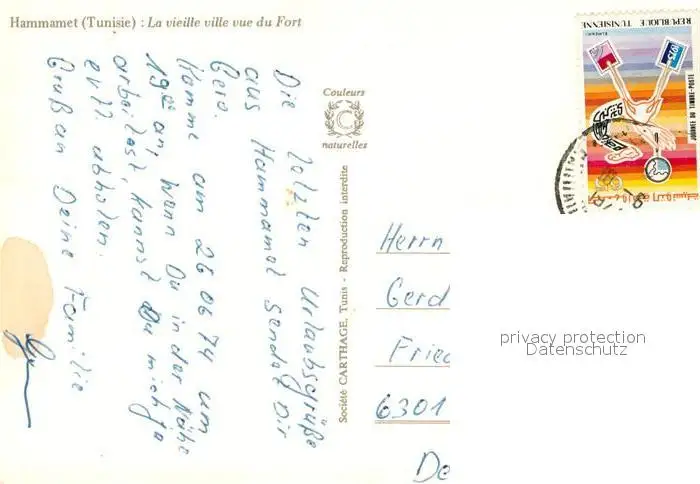 Hammamet (Tunisie) : La vieille ville vue du Fort
Die letzten Urlaubsgrüße
aus Hammamet sendet Dir
Gero.
Komme am 26 06 74 um
19⁰⁰ an, wenn Du in der Nähe
arbeitest, kannst Du mich ja
evtl abholen.
Gruß an Deine Familie
Couleurs
C
naturelles
Société CARTHAGE, Tunis - Reproduction interdite
REPUBLIQUE
TUNISIENNE
1973
JOURNEE DU TIMBRE-POSTE
Herrn
Gerd
Fried
6301
privacy protection
Datenschutz